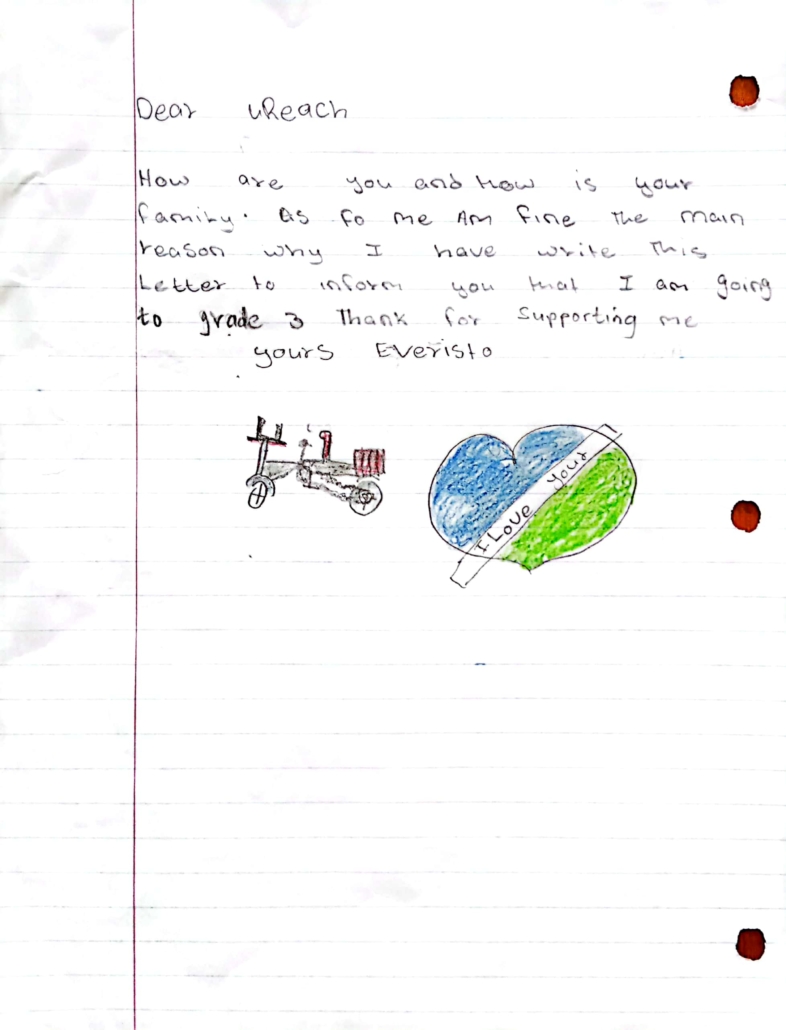 Dear uReach
How are you and How is your
family. as fo me Am fine the main
reason why I have write this
Letter to inform you that I am going
to grade 3 Thank for Supporting me
yours Everisto
I Love your